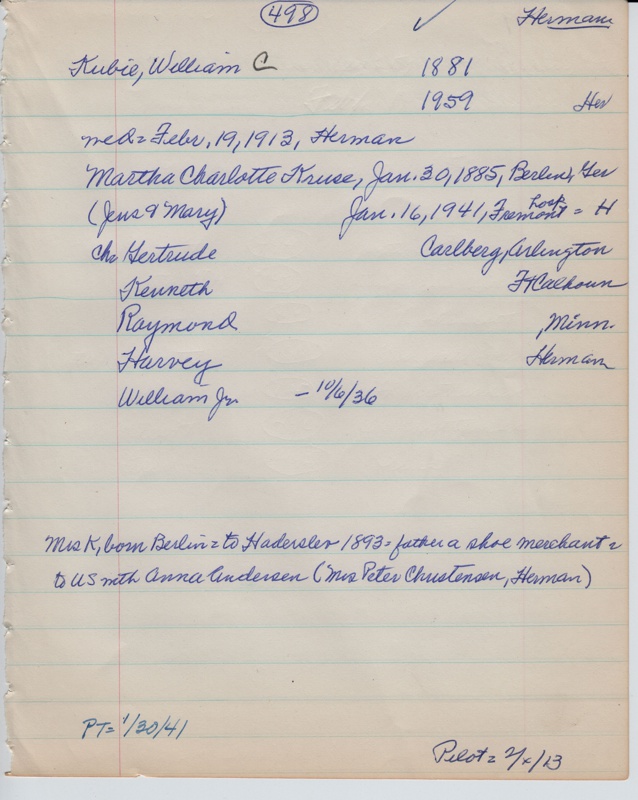 498 Herman
Kubie, William C 1881
1959 Her
med = Febr. 19, 1913, Herman
Martha Charlotte Kruse, Jan. 30, 1885, Berlin, Ger
(Jens & Mary) Jan. 16, 1941, Fremont hosp = H
Ch = Gertrude Carlberg, Arlington
Kenneth Ft Calhoun
Raymond , Minn.
Harvey Herman
William Jr. – 10/6/36
Mrs K, born Berlin = to Haderslev 1893 = father a shoe merchant =
to US with Anna Andersen (Mrs Peter Christensen, Herman)
PT = 1/30/41
Pilot =